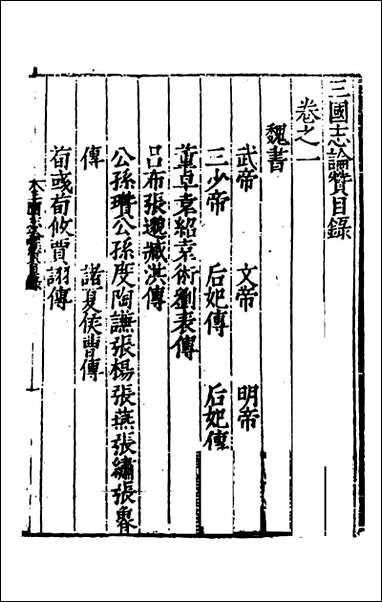 三國志論贊目錄
卷之一
魏書
武帝 文帝 明帝
三少帝 后妃傳 后妃傳
董卓袁紹袁術劉表傳
呂布張邈臧洪傳
公孫瓚公孫度陶謙張楊張燕張繡張魯
傳 諸夏侯曹傳
荀彧荀攸賈詡傳